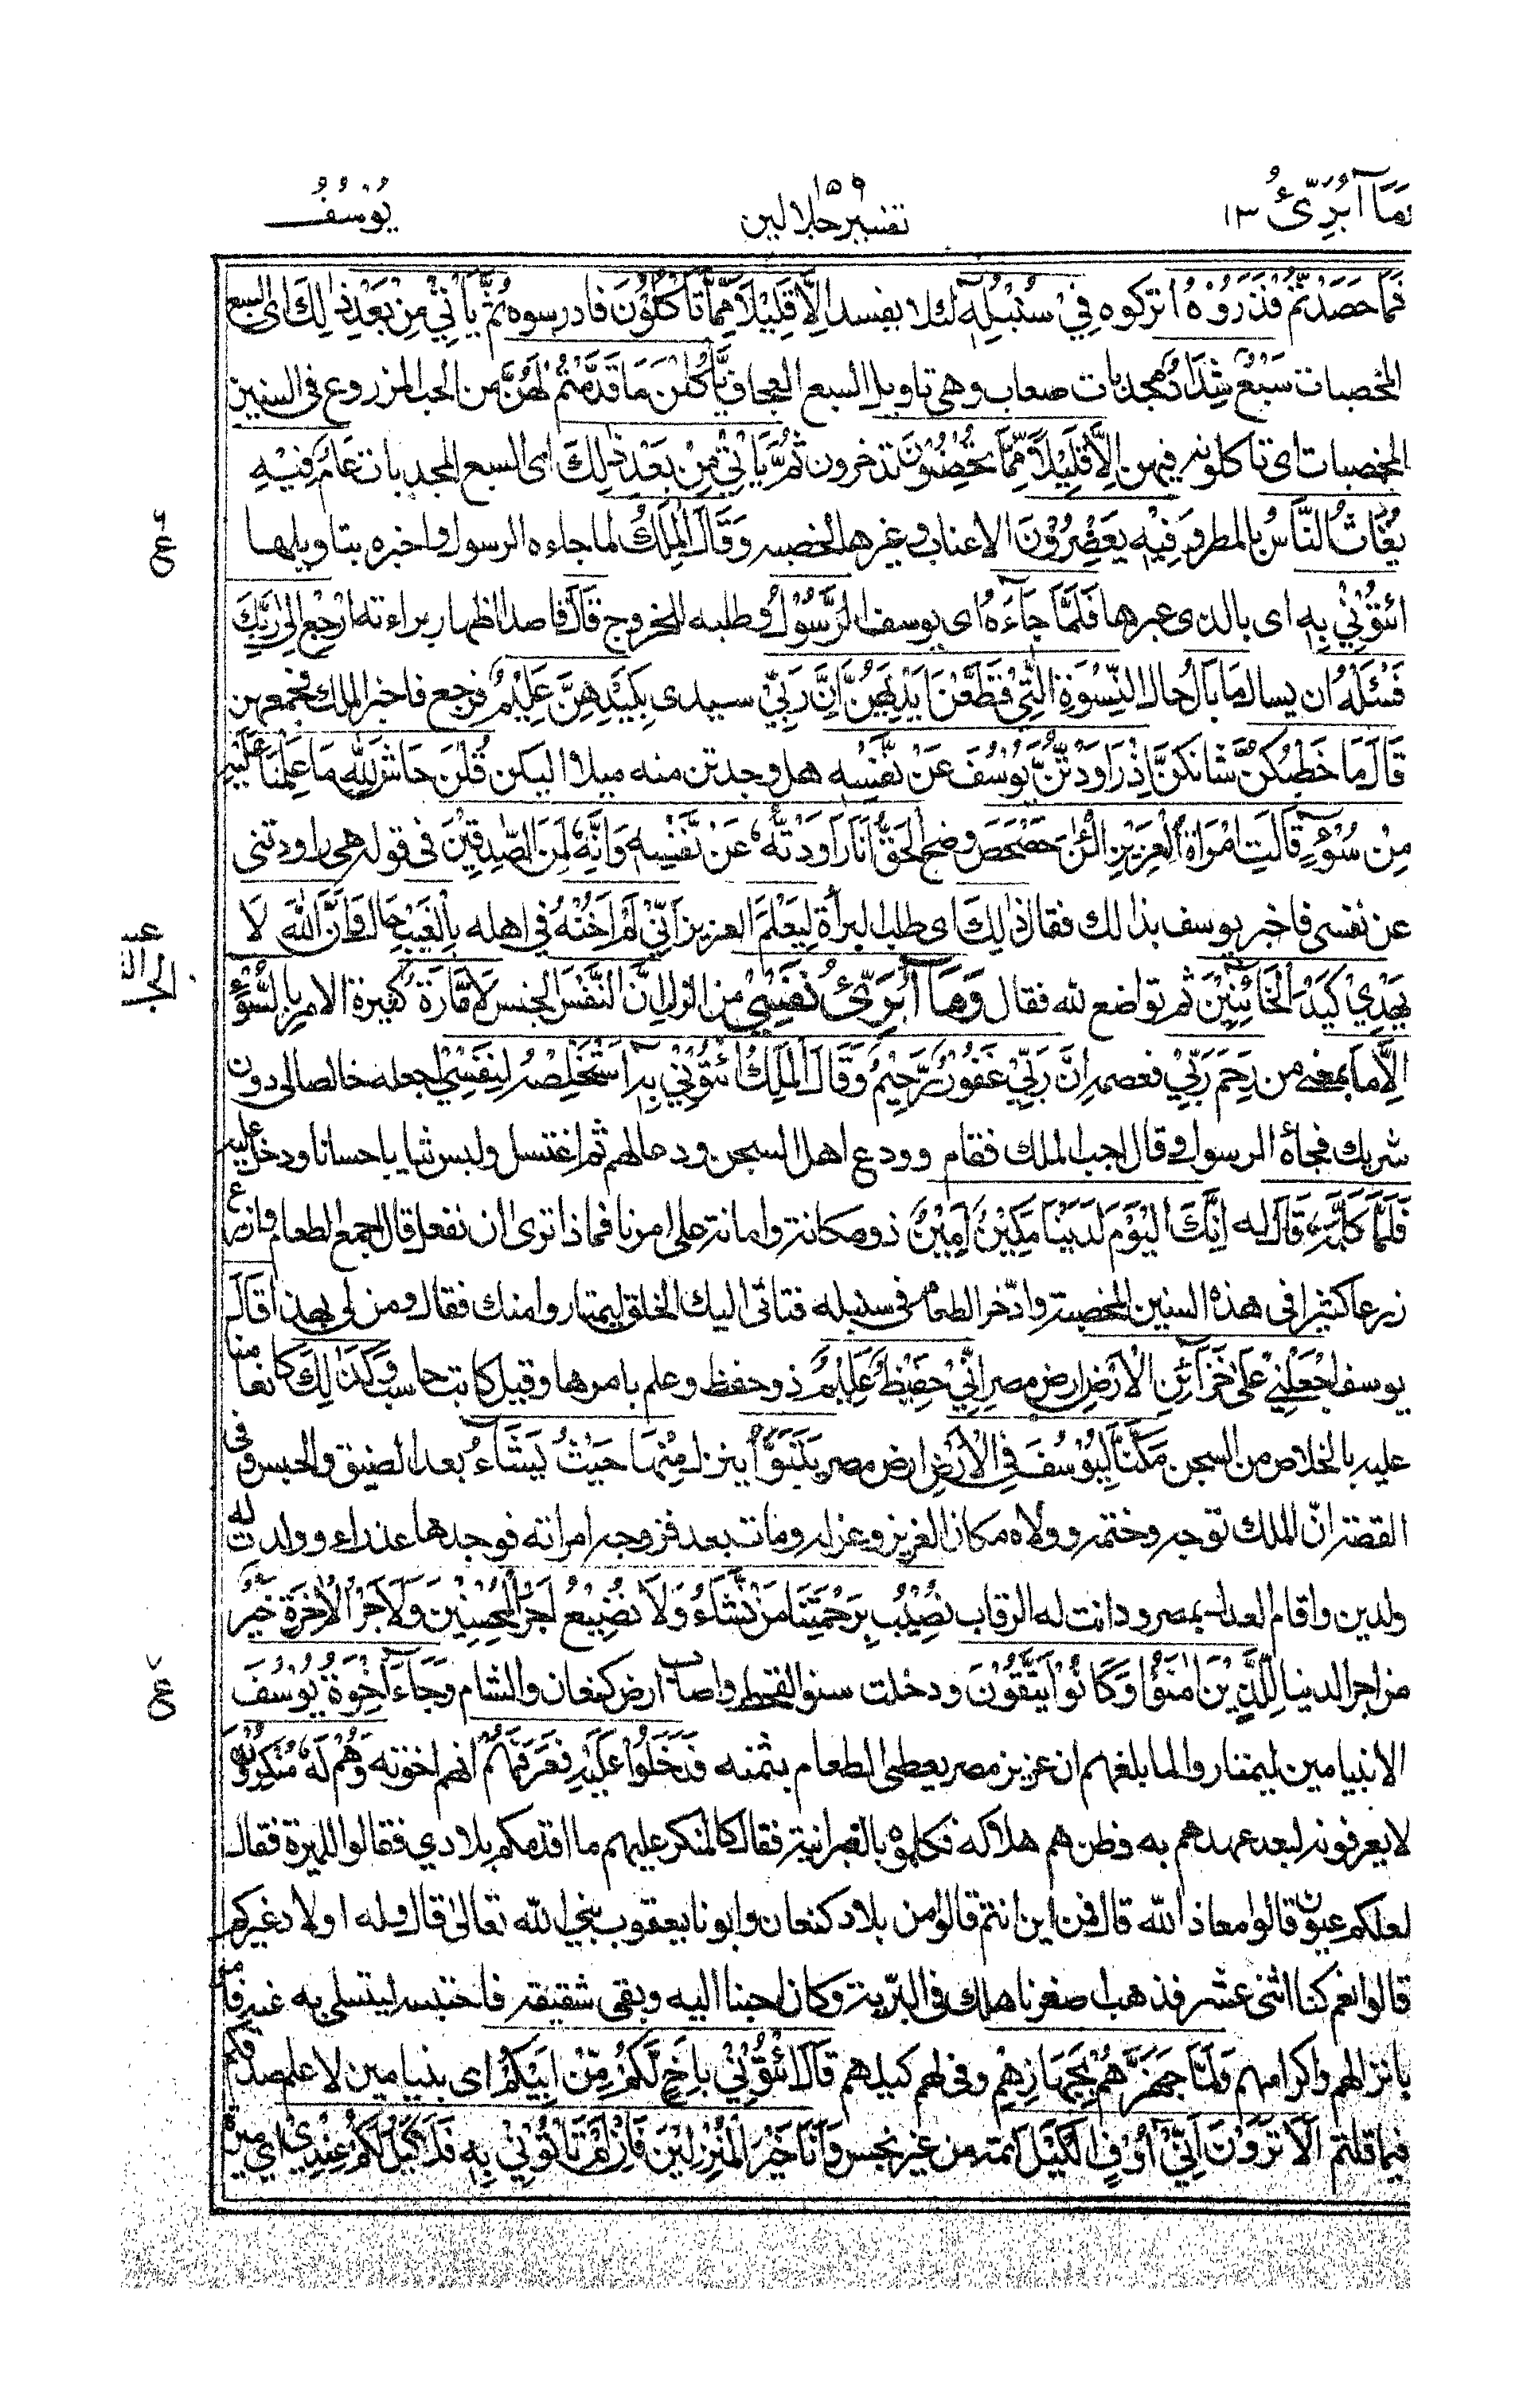 وَمَآ اُبَرِّئُ ١٣
١٥٩
تفسير جلالين
يُوْسُفُ
فَمَا حَصَدْتُّمْ فَذَرُوْهُ اتركوه فِيْ سُنْبُلِهٖ لئلا يفسد اِلَّا قَلِيْلًا مِّمَّا تَأْكُلُوْنَ فادرسوه ثُمَّ يَأْتِيْ مِنْ بَعْدِ ذٰلِكَ اى السبع
المخصبات سَبْعٌ شِدَادٌ مجدبات صعاب وهى تاويل السبع العجاف يَّأْكُلْنَ مَا قَدَّمْتُمْ لَهُنَّ من الحب المزروع فى السنين
المخصبات اى تاكلونه فيهن اِلَّا قَلِيْلًا مِّمَّا تُحْصِنُوْنَ تدخرون ثُمَّ يَأْتِيْ مِنْ بَعْدِ ذٰلِكَ اى السبع المجدبات عَامٌ فِيْهِ
يُغَاثُ النَّاسُ بالمطر وَفِيْهِ يَعْصِرُوْنَ الاعناب وغيرها لخصبه وَقَالَ الْمَلِكُ لما جاءه الرسول واخبره بتاويلها
ائْتُوْنِيْ بِهٖ اى بالذى عبرها فَلَمَّا جَآءَهُ اى يوسف الرَّسُوْلُ وطلبه للخروج قَالَ قاصدا اظهار براءته ارْجِعْ اِلٰى رَبِّكَ
فَسْئَلْهُ ان يسال مَا بَالُ حال النِّسْوَةِ الّٰتِيْ قَطَّعْنَ اَيْدِيَهُنَّ اِنَّ رَبِّيْ سيدى بِكَيْدِهِنَّ عَلِيْمٌ فرجع فاخبر الملك فجمعهن
قَالَ مَا خَطْبُكُنَّ شانكن اِذْ رَاوَدْتُّنَّ يُوْسُفَ عَنْ نَّفْسِهٖ هل وجدتن منه ميلا اليكن قُلْنَ حَاشَ لِلّٰهِ مَا عَلِمْنَا عَلَيْهِ
مِنْ سُوْٓءٍ قَالَتِ امْرَاَةُ الْعَزِيْزِ الْئٰنَ حَصْحَصَ وضح الْحَقُّ اَنَا رَاوَدْتُّهٗ عَنْ نَّفْسِهٖ وَاِنَّهٗ لَمِنَ الصّٰدِقِيْنَ فى قوله هى راودتنى
عن نفسى فاخبر يوسف بذلك فقال ذٰلِكَ اى طلب البرأة لِيَعْلَمَ العزيز اَنِّيْ لَمْ اَخُنْهُ فى اهله بِالْغَيْبِ حال وَاَنَّ اللّٰهَ لَا
يَهْدِيْ كَيْدَ الْخَآئِنِيْنَ ثم تواضع لله فقال وَمَآ اُبَرِّئُ نَفْسِيْ من الزلل اِنَّ النَّفْسَ الجنس لَاَمَّارَةٌ كثيرة الامر بِالسُّوْٓءِ
اِلَّا مَا بمعنى من رَحِمَ رَبِّيْ فعصمه اِنَّ رَبِّيْ غَفُوْرٌ رَّحِيْمٌ وَقَالَ الْمَلِكُ ائْتُوْنِيْ بِهٖ اَسْتَخْلِصْهُ لِنَفْسِيْ اجعله خالصا لى دون
شريك فجاءه الرسول وقال اجب الملك فقام وودع اهل السجن ودعا لهم ثم اغتسل ولبس ثيابا حسانا ودخل عليه
فَلَمَّا كَلَّمَهٗ قَالَ له اِنَّكَ الْيَوْمَ لَدَيْنَا مَكِيْنٌ اَمِيْنٌ ذو مكانة وامانة على امرنا فماذا ترى ان نفعل قال اجمع الطعام وازرع
زرعا كثيرا فى هذه السنين المخصبة وادّخر الطعام فى سنبله فتاتى اليك الخلق ليمتاروا منك فقال ومن لى بهذا قَالَ
يوسف اجْعَلْنِيْ عَلٰى خَزَآئِنِ الْاَرْضِ ارض مصر اِنِّيْ حَفِيْظٌ عَلِيْمٌ ذو حفظ وعلم بامرها وقيل كاتب حاسب وَكَذٰلِكَ كانعامنا
عليه بالخلاص من السجن مَكَّنَّا لِيُوْسُفَ فِى الْاَرْضِ ارض مصر يَتَبَوَّاُ ينزل مِنْهَا حَيْثُ يَشَآءُ بعد الضيق والحبس وفى
القصة انّ الملك توجه وختمه وولاه مكان العزيز وعزله ومات بعد فزوجه امراته فوجدها عذراء وولدت له
ولدين واقام العدل بمصر ودانت له الرقاب نُصِيْبُ بِرَحْمَتِنَا مَنْ نَّشَآءُ وَلَا نُضِيْعُ اَجْرَ الْمُحْسِنِيْنَ وَلَاَجْرُ الْاٰخِرَةِ خَيْرٌ
من اجر الدنيا لِّلَّذِيْنَ اٰمَنُوْا وَكَانُوْا يَتَّقُوْنَ ودخلت سنو القحط واصاب ارض كنعان والشام وَجَآءَ اِخْوَةُ يُوْسُفَ
الا بنيامين ليمتاروا لما بلغهم ان عزيز مصر يعطى الطعام بثمنه فَدَخَلُوْا عَلَيْهِ فَعَرَفَهُمْ انهم اخوته وَهُمْ لَهٗ مُنْكِرُوْنَ
لا يعرفونه لبعد عهدهم به وظنهم هلاكه فكلموه بالعبرانية فقال كالمنكر عليهم ما اقدمكم بلادي فقالوا للميرة فقال
لعلكم عيون قالوا معاذ الله قال فمن اين انتم قالوا من بلاد كنعان وابونا يعقوب نبى الله تعالى قال وله اولاد غيركم
قالوا نعم كنا اثنى عشر فذهب اصغرنا هلك فى البرّية وكان احبنا اليه وبقى شقيقه فاحتبسه ليتسلى به عنه فامر
بانزالهم واكرامهم وَلَمَّا جَهَّزَهُمْ بِجَهَازِهِمْ وفى لهم كيلهم قَالَ ائْتُوْنِيْ بِاَخٍ لَّكُمْ مِّنْ اَبِيْكُمْ اى بنيامين لاعلم صدقكم
فيما قلتم اَلَا تَرَوْنَ اَنِّيْ اُوْفِى الْكَيْلَ اتمه من غير بخس وَاَنَا خَيْرُ الْمُنْزِلِيْنَ فَاِنْ لَّمْ تَأْتُوْنِيْ بِهٖ فَلَا كَيْلَ لَكُمْ عِنْدِيْ اي ميرة